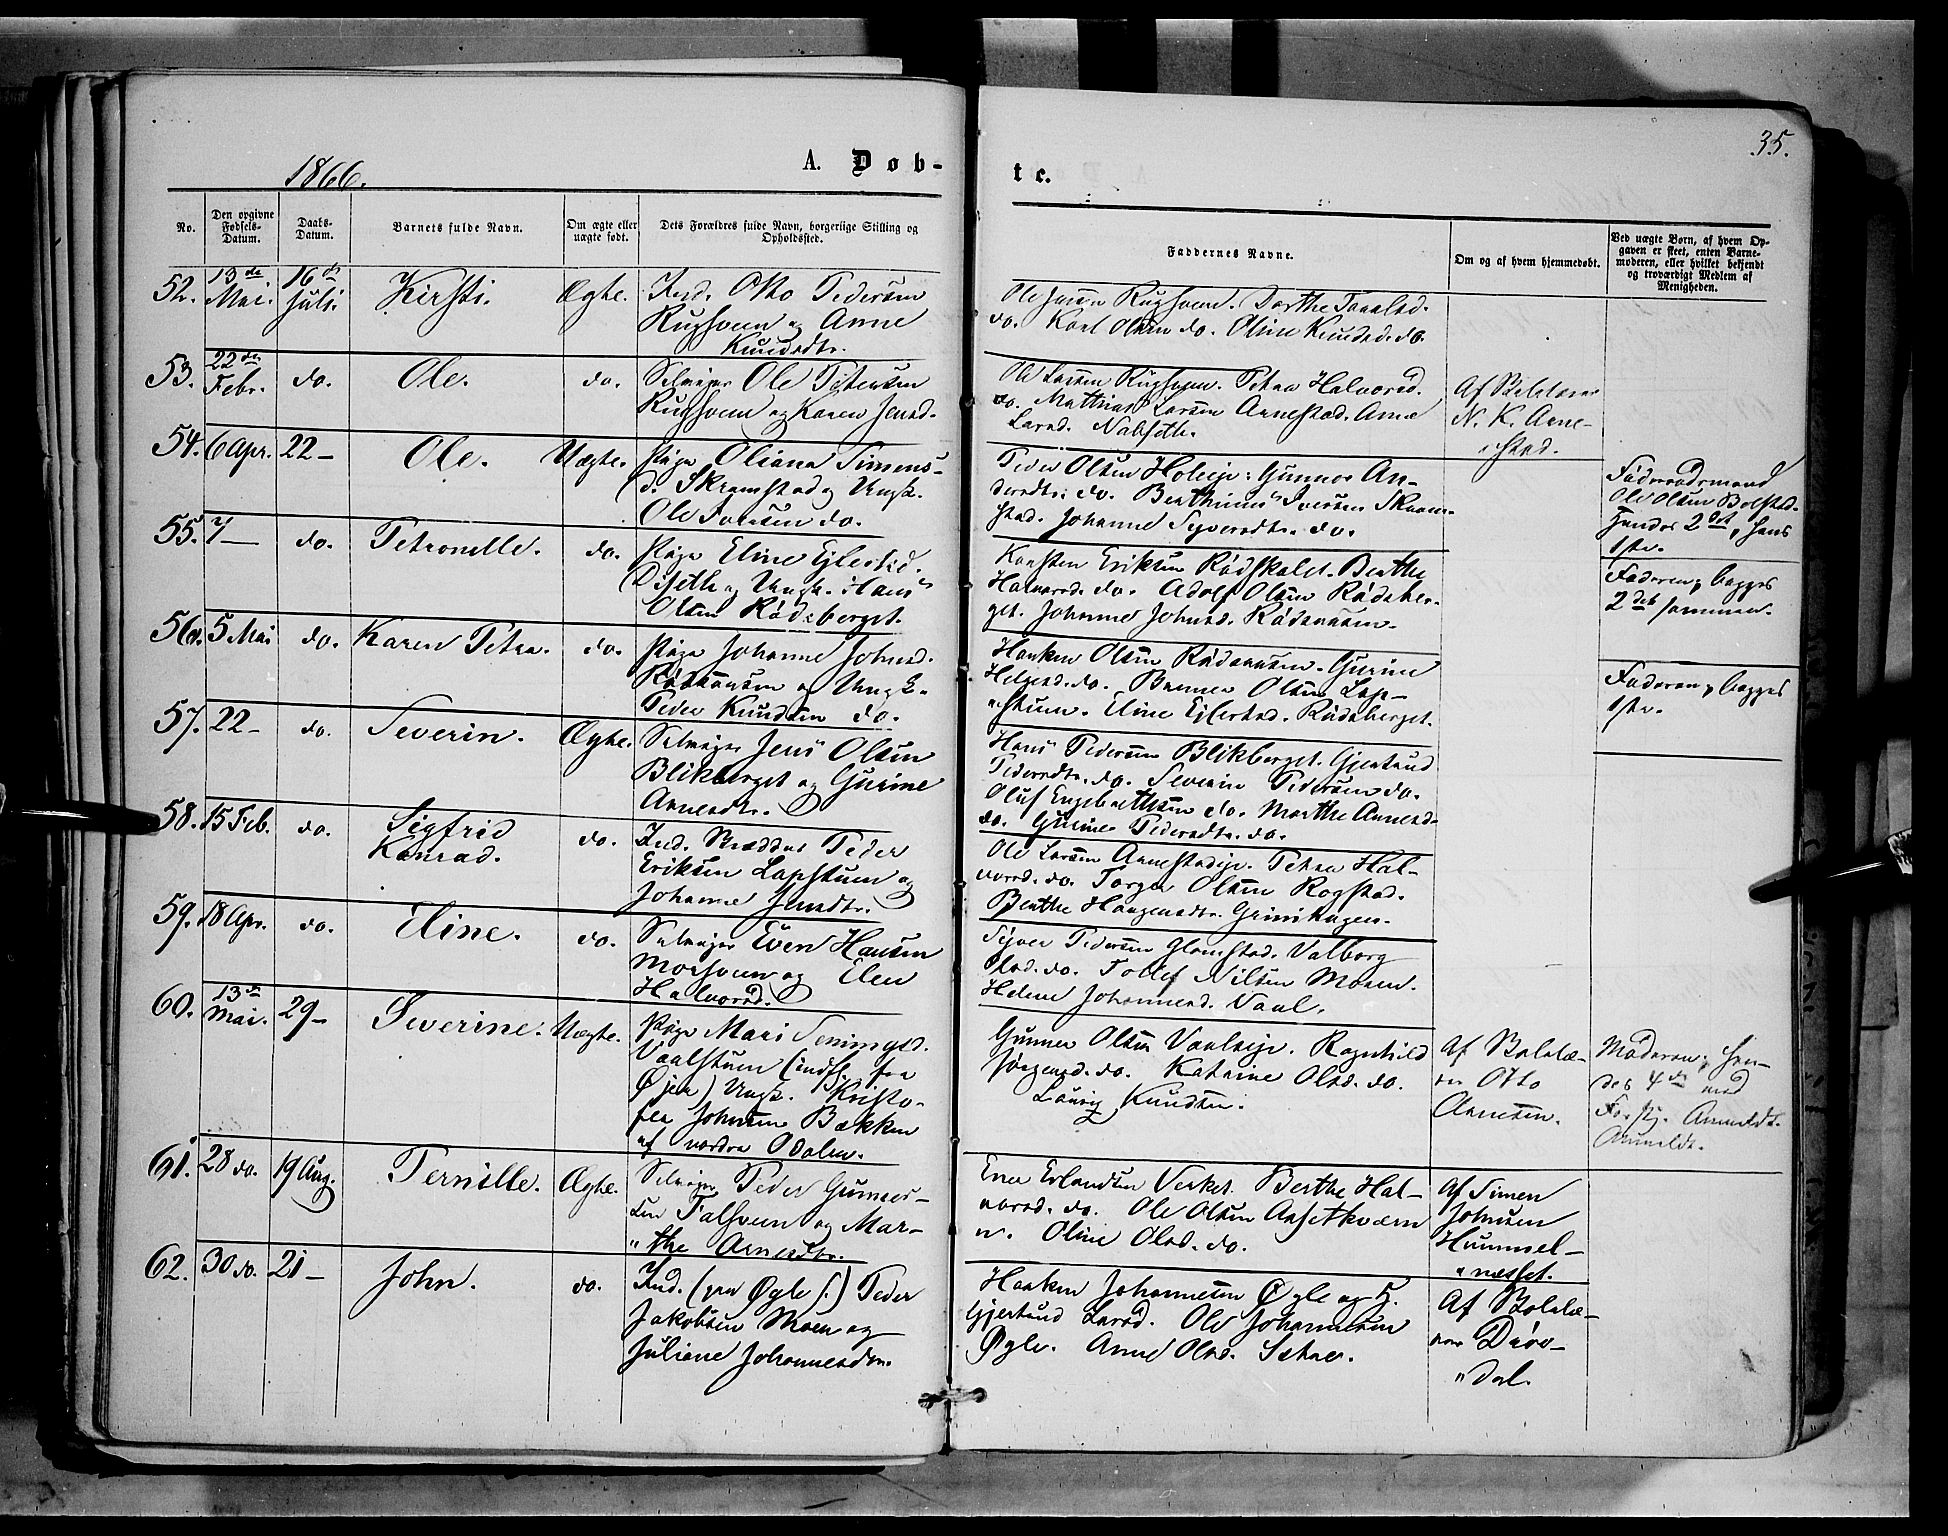 35.
1866.
A. Døb-
te.
No.
Den opgivne Fødsels-Datum.
Daabs-Datum.
Barnets fulde Navn.
Om ægte eller uægte født.
Dets Forældres fulde Navn, borgerlige Stilling og Opholdssted.
Faddernes Navne.
Om og af hvem hjemmedøbt.
Ved uægte Børn, af hvem Opgaven er skeet, enten Barnemoderen, eller hvilket bekjendt og troværdigt Medlem af Menigheden.
52. 13de Mai. 16de Juli. Kirsti. Ægte. Ind. Otto Pedersen
Rugsveen og Anne
Knudsdtr.
Ole Jensen Rugsveen. Dorthe
do. Karl Olsen do. Oline Knudsd. do.
53. 22de Febr. do. Ole. do. Selveier Ole Petersen
Rugsveen og Karen Jensd.
Ole Larsen Rugsveen. Petra Halvorsd.
do. Mathias Larsen Arnestad. Anne
Larsd. Nabseth.
Af Skolelærer
N. K. Arne-
stad.
54. 6 Apr. 22 - Ole. Uægte. Pige Oliana Simens-
d. Skramstad og Ungk.
Ole Iversen do.
Peder Olsen Holeie. Gunnor An-
dersdtr. do. Berthinus Iversen Skram-
stad. Johanne Syversdtr. do.
Føderaadsmand
Ole Olsen Bolstad.
Hendes 2det, hans
1ste.
55. 7 - do. Petronelle. do. Pige Eline Ejlertsd.
Diseth og Ungk. Hans
Olsen Rødsberget.
Karsten Eriksen Rødskalet. Berthe
Halvorsd. do. Adolf Olsen Rødsber-
get. Johanne Johnsd. Rødsaasen.
Faderen, begges
2det sammen.
56. 5 Mai do. Karen Petra. do. Pige Johanne Johnsd.
Rødsaasen og Ungk.
Peder Knudsen do.
Haaken Olsen Rødsaasen. Gurine
Helgesd. do. Olsen Lap-
stuen. Eline Ejlertsd. Rødsberget.
Faderen, begges
1ste.
57. 22 - do. Severin. Ægte. Selveier Jens Olsen
Blikberget og Gurine
Arnesdtr.
Hans Pedersen Blikberget. Gjertrud
Pedersdtr. do. Severin Pedersen do.
Oluf Engebrethsen do. Marthe Arnesd.
do. Gurine Pedersdtr. do.
58. 15 Feb. do. Sigfrid
Konrad. do. Ind. Skrædder Peder
Eriksen Lapstuen og
Johanne Jensdtr.
Ole Larsen Arnestadeje. Petra Hal-
vorsd. do. Torger Olsen Rogstad.
Berthe Haagensdtr. Grinihagen.
59. 18 Apr. do. Eline. do. Selveier Even Hansen
Morsveen og Elen
Halvorsd.
Syver Pedersen Glomstad. Valborg
Olsd. do. Tollef Nilsen Moren.
Helene Johannesd. Vaal.
60. 13de Mai. 29 - Severine. Uægte. Pige Mari Semingsd.
Vaalstuen (indfl. fra
Øjer) Ungk. Kristo-
fer Johnsen Bækken
af nordre Odalen.
Gunner Olsen Vaaleie. Ragnhild
Jørgensd. do. Katrine Olsd. do.
Lauriz Knudsen.
Af Skolelæ-
rer Otto
Arnesen.
Moderen; hen-
des 4de med
Forskj. Anmeldt.
Anmeldt.
61. 28 do. 19 Aug. Pernille. Ægte. Selveier Peder Gunner-
sen Falsveen og Mar-
the Arnesdtr.
Ener Erlandsen Verket. Berthe Hal-
vorsd. do. Ole Olsen Aasetkværn
n. Oline Olsd. do.
Af Simen
Johnsen
Hummel-
næsset.
62. 30 do. 21 - John. do. Ind. (paa Øgle s.) Peder
Jakobsen Moen og
Juliane Johannesdtr.
Haaken Johannesen Øgle og H.
Gjertrud Larsd. Ole Johannesen
Øgle. Anne Olsd. Sætre.
Af Skolelæ-
rer Drøv-
dal.